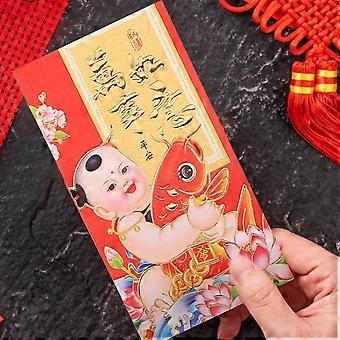 萬事
如意
平安